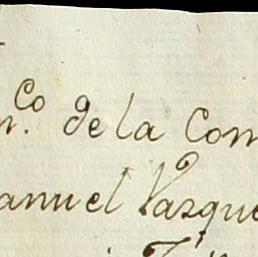 n.co de la Com
anuel Vazque